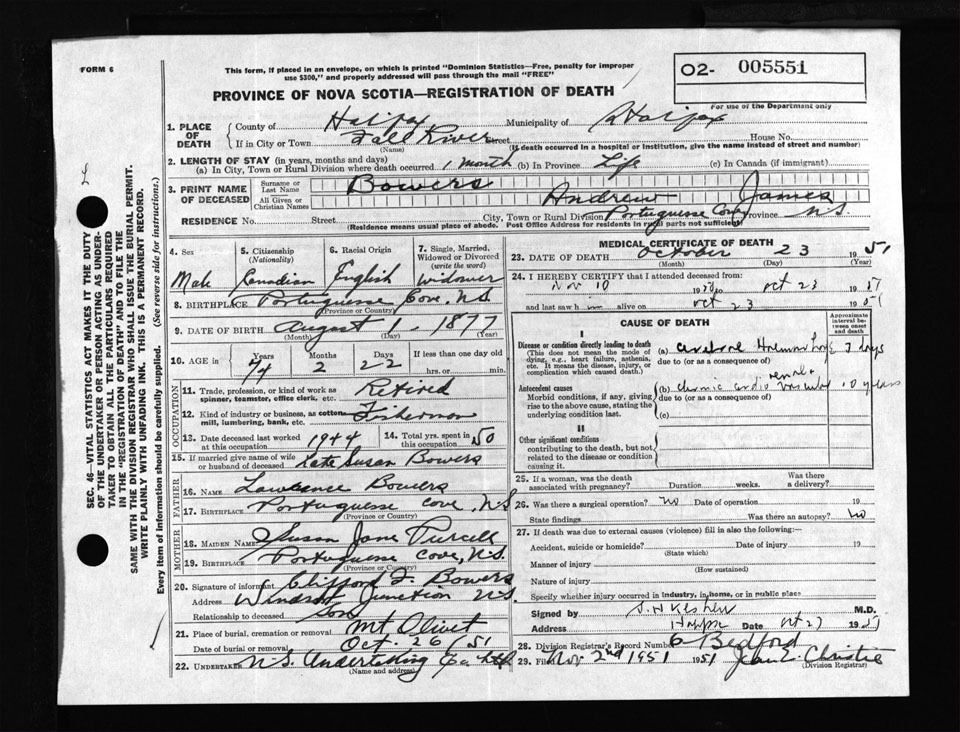 FORM 6
This form, if placed in an envelope, on which is printed "Dominion Statistics—Free, penalty for improper
use $300," and properly addressed will pass through the mail "FREE"
O2- 005551
For use of the Department only
PROVINCE OF NOVA SCOTIA—REGISTRATION OF DEATH
1. PLACE OF DEATH
County of Halifax Municipality of Halifax
If in City or Town Fall River Street House No.
(Name) (If death occurred in a hospital or institution, give the name instead of street and number)
2. LENGTH OF STAY (in years, months and days)
(a) In City, Town or Rural Division where death occurred 1 month (b) In Province Life (c) In Canada (if immigrant)
3. PRINT NAME OF DECEASED
Surname or Last Name Bowers
All Given or Christian Names Andrew James
RESIDENCE No. Street City, Town or Rural Division Portuguese Cove Province N.S.
(Residence means usual place of abode. Post Office Address for residents in rural parts not sufficient)
4. Sex Male
5. Citizenship (Nationality) Canadian
6. Racial Origin English
7. Single, Married, Widowed or Divorced (write the word) Widower
8. BIRTHPLACE Portuguese Cove, N.S.
(Province or Country)
9. DATE OF BIRTH August 1 - 1877
(Month) (Day)
10. AGE in Years Months Days If less than one day old
74 2 22 hrs. or min.
OCCUPATION
11. Trade, profession, or kind of work as spinner, teamster, office clerk, etc. Retired
12. Kind of industry or business, as cotton mill, lumbering, bank, etc. Fisherman
13. Date deceased last worked at this occupation 1944
14. Total yrs. spent in this occupation 50
15. If married give name of wife or husband of deceased Late Susan Bowers
FATHER
16. NAME Lawrence Bowers
17. BIRTHPLACE Portuguese Cove, N.S.
(Province or Country)
MOTHER
18. MAIDEN NAME Susan Jane Purcell
19. BIRTHPLACE Portuguese Cove, N.S.
(Province or Country)
20. Signature of informant Clifford F. Bowers
Address Windsor Junction N.S.
Relationship to deceased Son
21. Place of burial, cremation or removal Mt Olivet
Date of burial or removal Oct. 26 51
22. UNDERTAKER N.S. Undertaking
(Name and address)
MEDICAL CERTIFICATE OF DEATH
23. DATE OF DEATH October 23 1951
(Month) (Day)
24. I HEREBY CERTIFY that I attended deceased from:
Nov 10 to Oct 23 1951
and last saw him alive on Oct 23 1951
CAUSE OF DEATH
Approximate interval between onset and death
I
Disease or condition directly leading to death
(This does not mean the mode of dying, e.g., heart failure, asthenia, etc. It means the disease, injury, or complication which caused death.)
(a) Hemorrhage 7 days
due to (or as a consequence of)
Antecedent causes
Morbid conditions, if any, giving rise to the above cause, stating the underlying condition last.
(b) Chronic cardio vascular renal 10 years
due to (or as a consequence of)
(c)
II
Other significant conditions
contributing to the death, but not related to the disease or condition causing it.
25. If a woman, was the death associated with pregnancy? Duration weeks. Was there a delivery?
26. Was there a surgical operation? no Date of operation 19
State findings Was there an autopsy? no
27. If death was due to external causes (violence) fill in also the following:—
Accident, suicide or homicide? Date of injury 19
(State which)
Manner of injury
(How sustained)
Nature of injury
Specify whether injury occurred in industry, in home, or in public place
Signed by M.D.
Address Date Oct 27 1951
28. Division Registrar's Record Number 6 Bedford
29. Filed Nov 2nd 1951 1951 Jean E. Christie
(Division Registrar)
SEC. 46—VITAL STATISTICS ACT MAKES IT THE DUTY
OF THE UNDERTAKER OR PERSON ACTING AS UNDER-
TAKER TO OBTAIN ALL THE PARTICULARS REQUIRED
IN THE "REGISTRATION OF DEATH" AND TO FILE THE
SAME WITH THE DIVISION REGISTRAR WHO SHALL ISSUE THE BURIAL PERMIT.
WRITE PLAINLY WITH UNFADING INK. THIS IS A PERMANENT RECORD.
Every item of information should be carefully supplied. (See reverse side for instructions.)